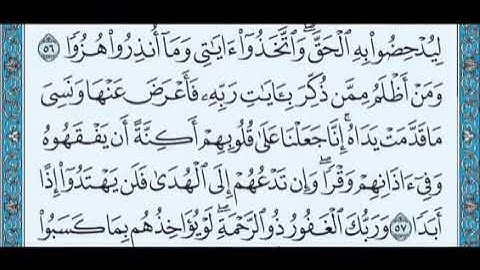 لِيُدْحِضُوا۟ بِهِ ٱلْحَقَّ ۖ وَٱتَّخَذُوٓا۟ ءَايَـٰتِى وَمَآ أُنذِرُوا۟ هُزُوًا ٥٦
وَمَنْ أَظْلَمُ مِمَّن ذُكِّرَ بِـَٔايَـٰتِ رَبِّهِۦ فَأَعْرَضَ عَنْهَا وَنَسِىَ
مَا قَدَّمَتْ يَدَاهُ ۚ إِنَّا جَعَلْنَا عَلَىٰ قُلُوبِهِمْ أَكِنَّةً أَن يَفْقَهُوهُ
وَفِىٓ ءَاذَانِهِمْ وَقْرًا ۖ وَإِن تَدْعُهُمْ إِلَى ٱلْهُدَىٰ فَلَن يَهْتَدُوٓا۟ إِذًا
أَبَدًا ٥٧ وَرَبُّكَ ٱلْغَفُورُ ذُو ٱلرَّحْمَةِ ۖ لَوْ يُؤَاخِذُهُم بِمَا كَسَبُوا۟